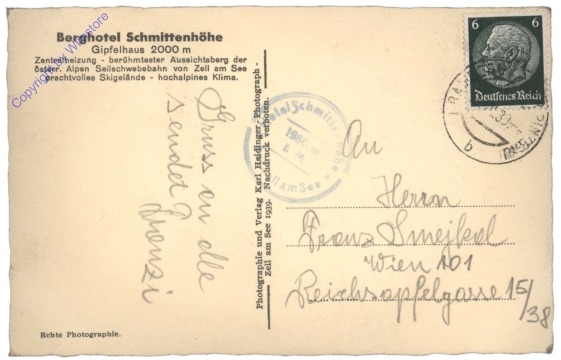 Berghotel Schmittenhöhe
Gipfelhaus 2000 m
Zentralheizung - berühmtester Aussichtsberg der
österr. Alpen Seilschwebebahn von Zell am See
prachtvolles Skigelände - hochalpines Klima.
Gruss an alle
sendet
Franzi
Echte Photographie.
Photographie und Verlag Karl Haidinger - Photograph -
Zell am See 1939. Nachdruck verboten.
6 6
Deutsches Reich
b
An
Herrn
Franz Smejkal
Wien 101
Reichsapfelgasse 15/
38